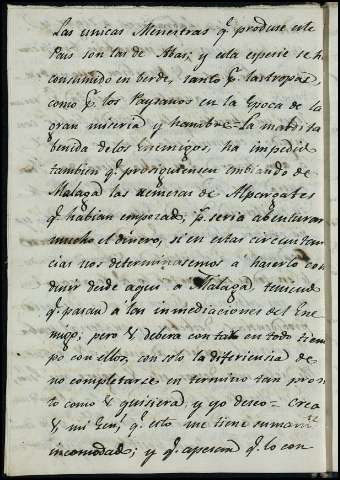 Las unicas Menestras q.e produse este
Pais son las de Abas; y esta especie se h
consumido en berde, tanto p.r las tropas,
como p.r los Paysanos en la Epoca de la
gran miseria y hambre = La maldita
benida de los Enemigos, ha impedido
tambien q.e prosiguiensen embiando de
Malaga las remesas de Alpargates
q.e habian empezado; p.s seria abenturar
mucho el dinero, si en estas circunstan
cias nos determinasemos a haserlo con
dusir desde aqui á Malaga teniend
q.e pasar á las inmediaciones del Ene
migo; pero V deberá contar en todo tiem
po con ellos, con solo la diferiencia de
no completarce en termino tan pron
to como V quisiera, y yo deseo = Crea
V mi Gen.l q.e esto me tiene sumam.te
incomodado; y q.e apesar q.e lo con